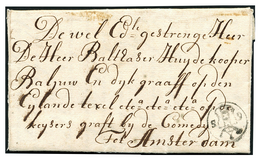 De wel Ed: gestrenge Heer
De Heer Balthaser Huydekooper
Baljuw En dykgraaff op den
Eylande texel etc etc etc op de
keysers graft bij de Comedi
Tot Amsterdam